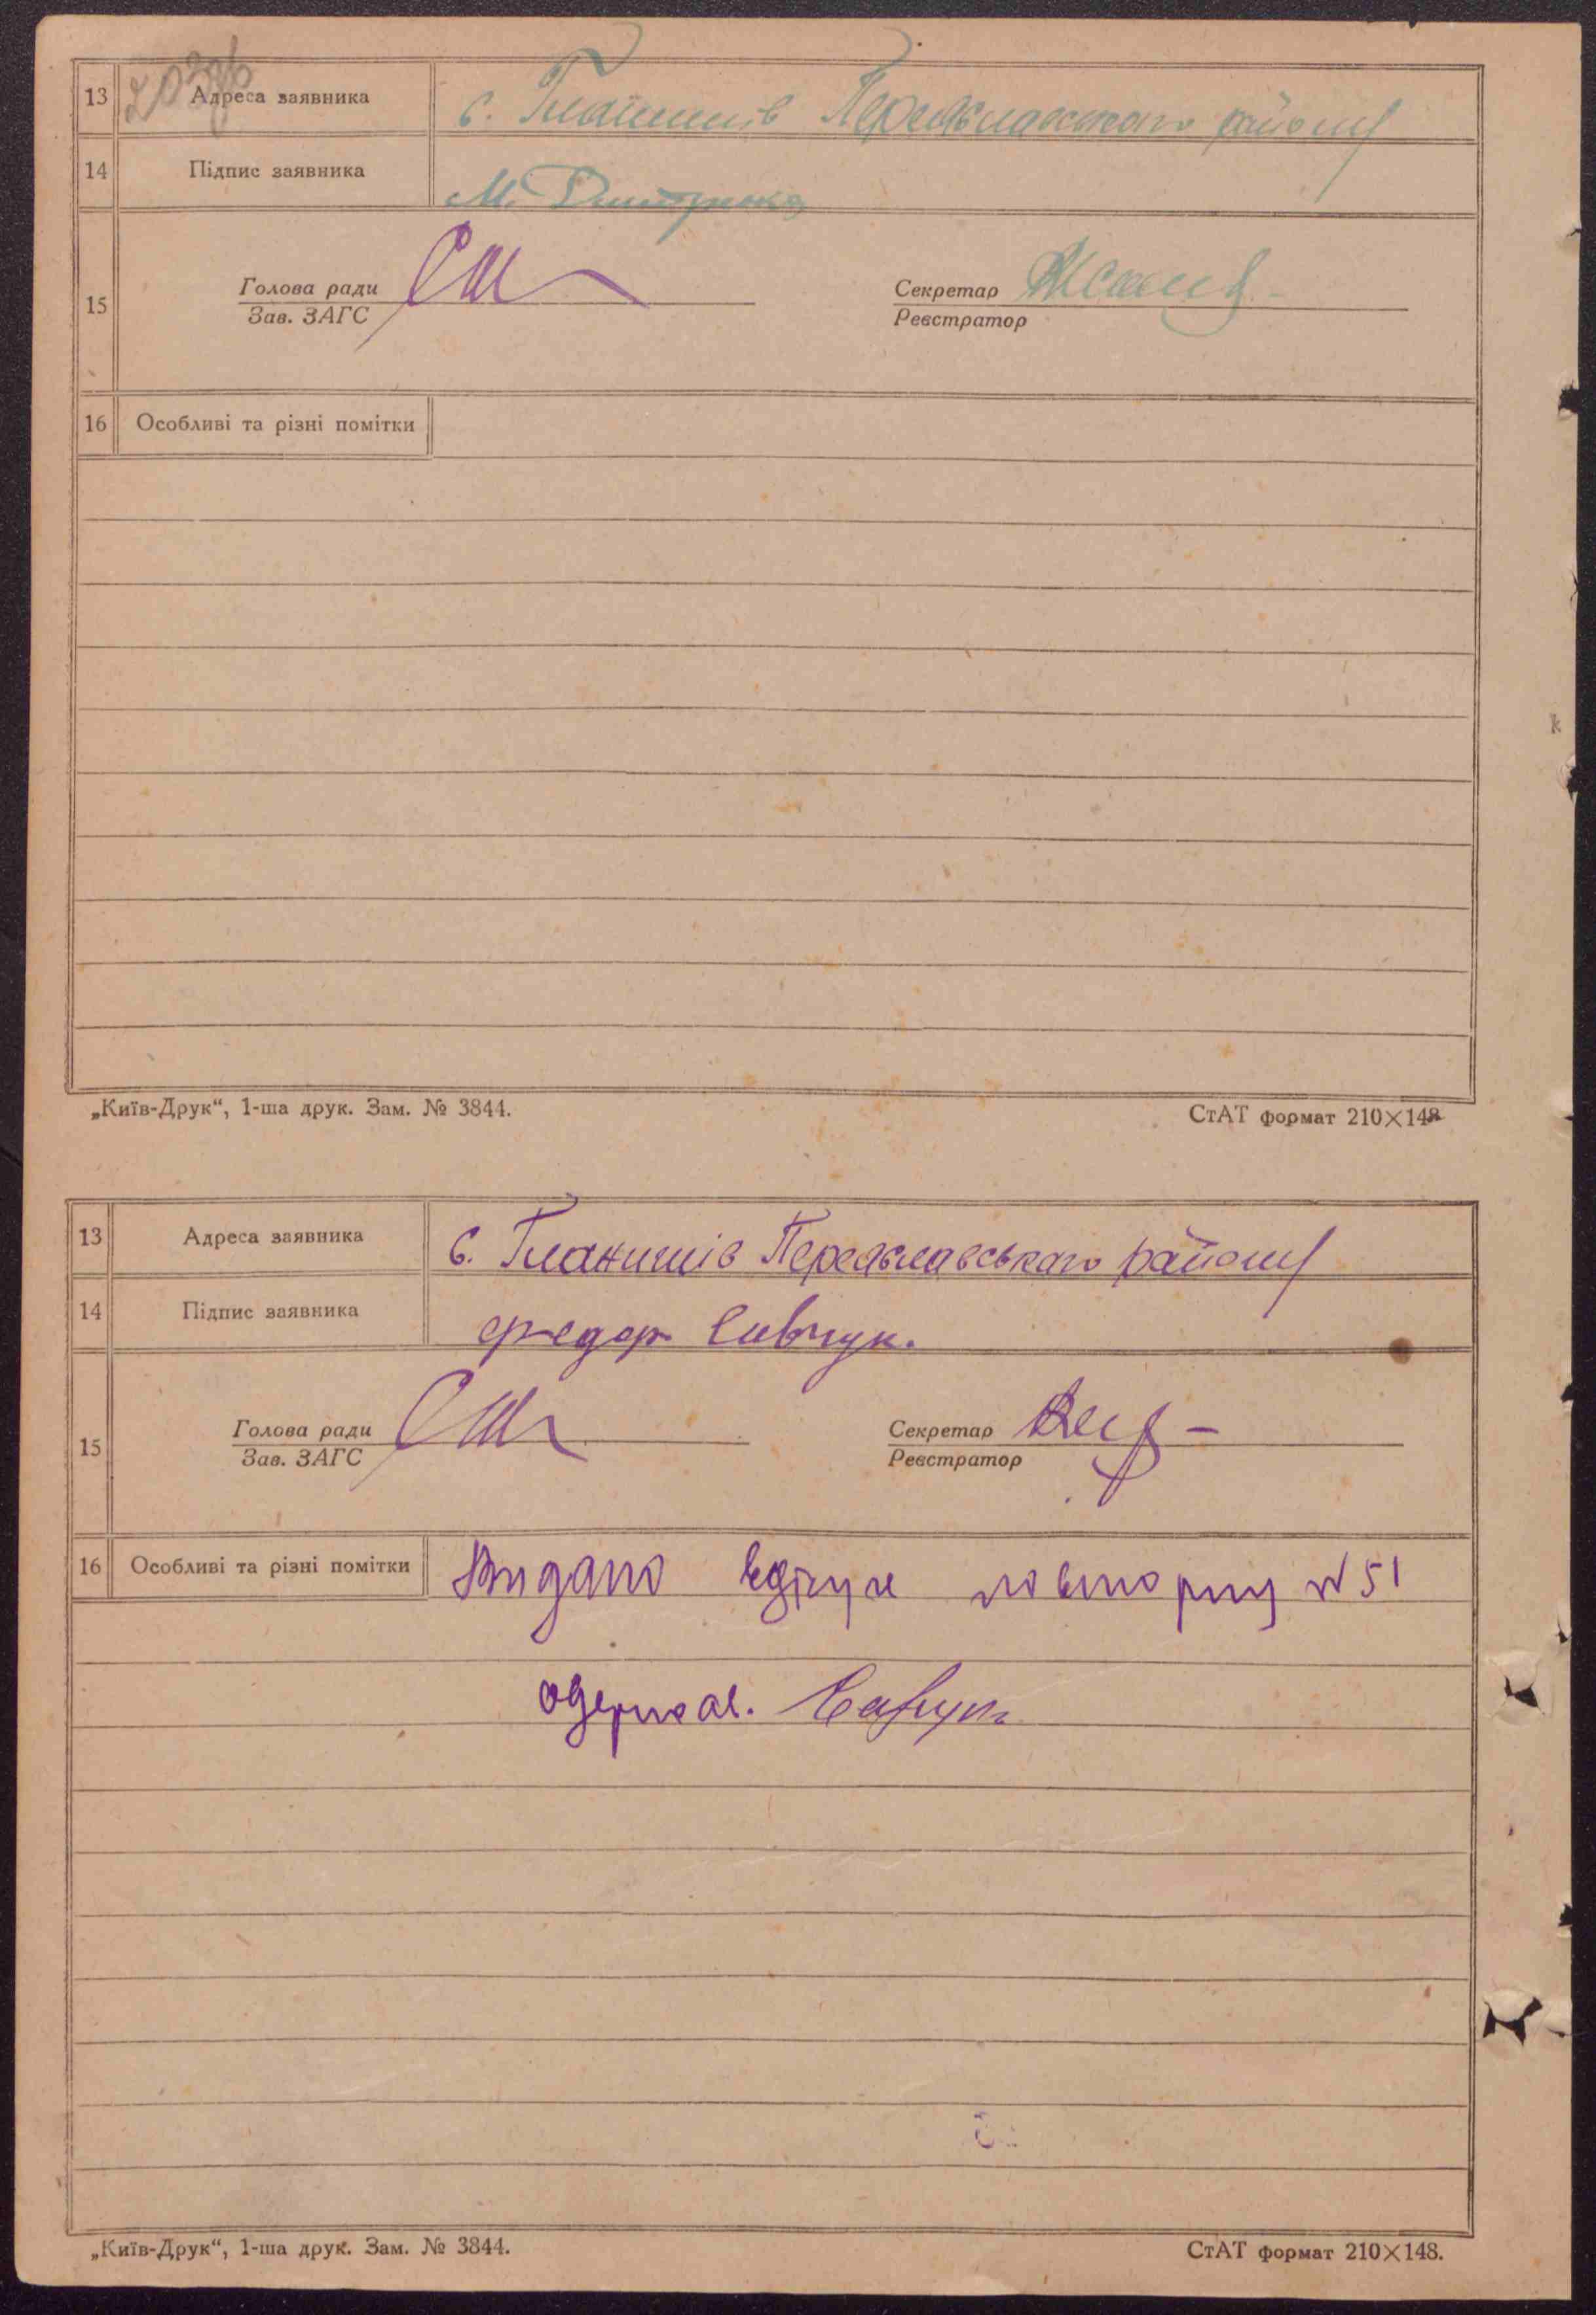 13 Адреса заявника с. Гланишів Переяславського району
14 Підпис заявника М. Дмитренко
15 Голова ради Секретар
Зав. ЗАГС Реєстратор
16 Особливі та різні помітки
„Київ-Друк“, 1-ша друк. Зам. № 3844. СтАТ формат 210×148
13 Адреса заявника с. Гланишів Переяславського району
14 Підпис заявника Федор Савчук.
15 Голова ради Секретар
Зав. ЗАГС Реєстратор
16 Особливі та різні помітки Видано повторну № 51
одержав. Савчук
„Київ-Друк“, 1-ша друк. Зам. № 3844. СтАТ формат 210×148.